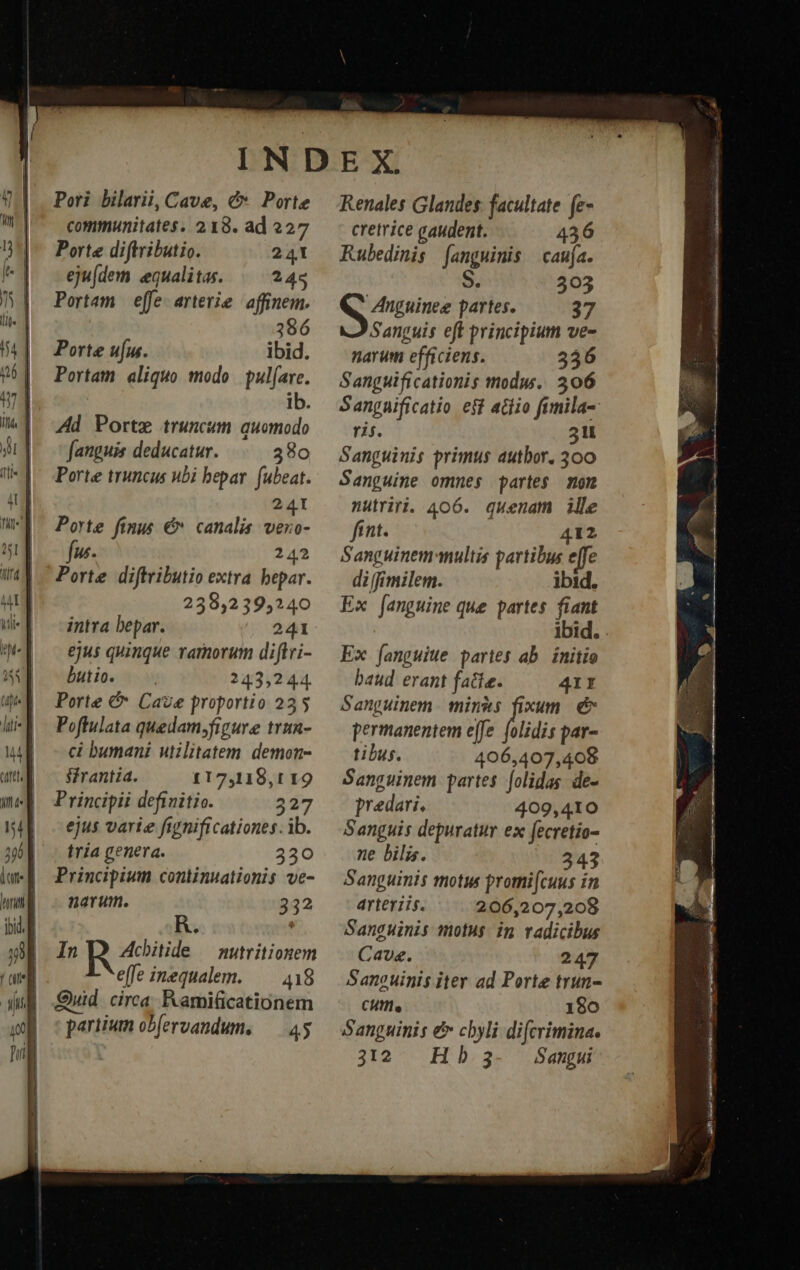 INDEX.
Pori bilarii, Cavæ, & Portæ
communitates. 218. ad 227
Portæ distributio. 241
ejusdem æqualitas. 245
Portam esse arteriæ affinem.
386
Portæ usus. ibid.
Portam aliquo modo pulsare.
ib.
Ad Portæ truncum quomodo
sanguis deducatur. 380
Portæ truncus ubi hepar subeat.
241
Portæ sinus & canalis veno-
sus. 242
Portæ distributio extra hepar.
238,239,240
intra hepar. 241
ejus quinque ramorum distri-
butio. 243,244
Portæ & Cavæ proportio 235
Postulata quædam, figuræ trun-
ci humani utilitatem demon-
strantia. 117,118,119
Principii definitio. 327
ejus variæ significationes. ib.
tria genera. 330
Principium continuationis ve-
narum. 332
R.
In RAchitide nutritionem
esse inæqualem. 418
Quid circa Ramificationem
partium observandum. 45
Renales Glandes facultate se-
cretrice gaudent. 436
Rubedinis sanguinis causa.
S. 303
SAnguineæ partes. 37
Sanguis est principium ve-
narum efficiens. 336
Sanguificationis modus. 306
Sanguificatio est actio simila-
ris. 311
Sanguinis primus author. 300
Sanguine omnes partes non
nutriri. 406. quænam illæ
sint. 412
Sanguinem multis partibus esse
dissimilem. ibid.
Ex sanguine quæ partes fiant
ibid.
Ex sanguine partes ab initio
haud erant factæ. 411
Sanguinem minùs fixum &
permanentem esse solidis par-
tibus. 406,407,408
Sanguinem partes solidas de-
prædari. 409,410
Sanguis depuratur ex secretio-
ne bilis. 343
Sanguinis motus promiscuus in
arteriis. 206,207,208
Sanguinis motus in radicibus
Cavæ. 247
Sanguinis iter ad Portæ trun-
cum. 180
Sanguinis & chyli discrimina.
312 Hh 3 Sangui